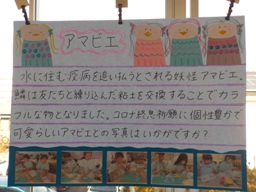 アマビエ
水に住む疫病を追い払うとされる妖怪アマビエ。
鱗は友だちと練り込んだ粘土を交換することでカラ
フルな物となりました。コロナ終息祈願に個性豊かで
可愛らしいアマビエとの写真はいかがですか？